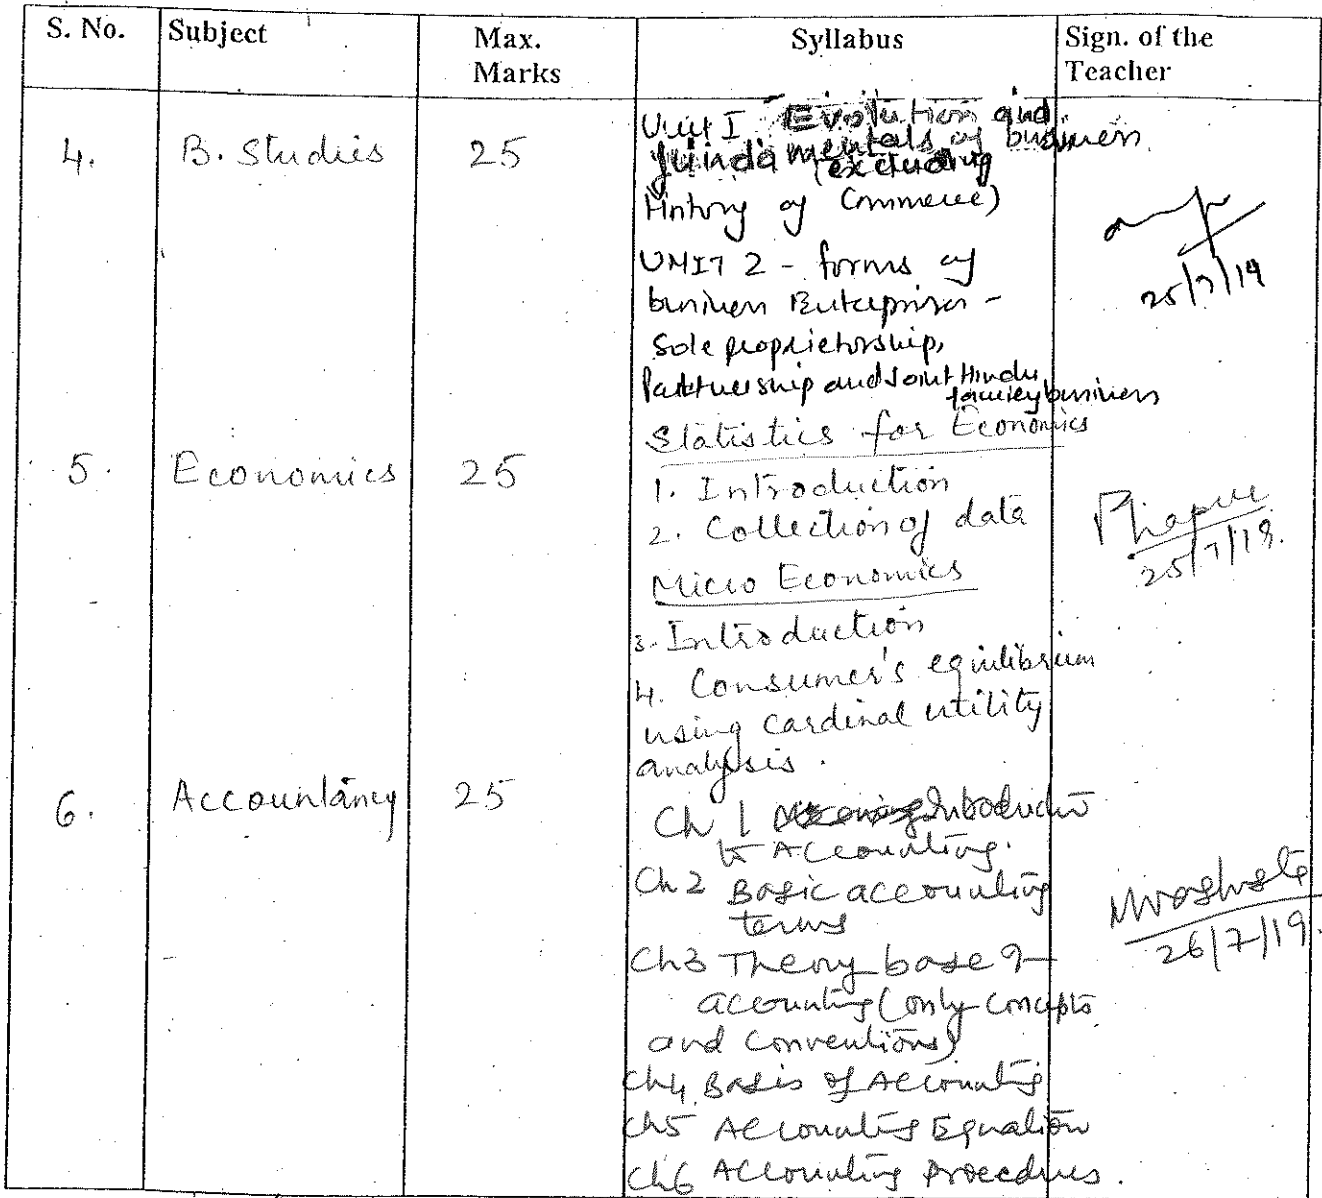 S. No. Subject Max. Marks Syllabus Sign. of the Teacher
4. B. Studies 25 Unit I Evolution and
fundamentals of business
(excluding
History of Commerce)
UNIT 2 - forms of
business Enterprises -
Sole proprietorship,
Partnership and Joint Hindu
family business
25/7/19
Statistics for Economics
5. Economics 25 1. Introduction
2. Collection of data
25/7/19.
Micro Economics
3. Introduction
4. Consumer's equilibrium
using cardinal utility
analysis.
6. Accountancy 25 Ch 1 Introduction
to Accounting.
Ch 2 Basic accounting
terms
26/7/19.
Ch3 Theory base of
accounting (only concepts
and conventions)
Ch4 Basis of Accounting
Ch5 Accounting Equation
Ch6 Accounting Procedures.